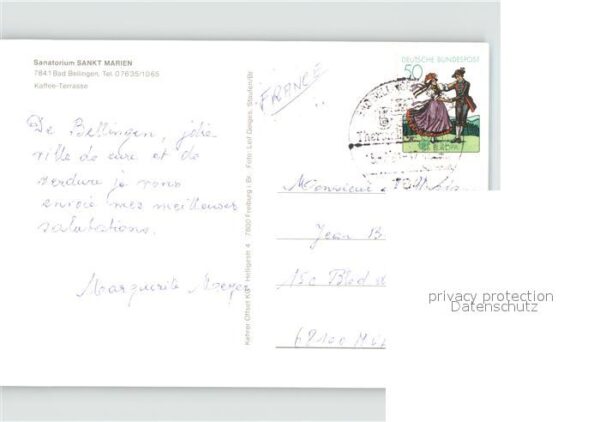 Sanatorium SANKT MARIEN
7841 Bad Bellingen, Tel. 0 76 35/10 65
Kaffee-Terrasse
De Bellingen, jolie
ville de cure et de
verdure je vous
envoie mes meilleures
salutations.
Marguerite Meyer
Kehrer Offset KG Heiligestr. 4 7800 Freiburg i. Br. Foto: Leif Geiges, Staufen/Br.
FRANCE
DEUTSCHE BUNDESPOST
50
EUROPA
Monsieur
Jean B
150 Bled
68100
privacy protection
Datenschutz